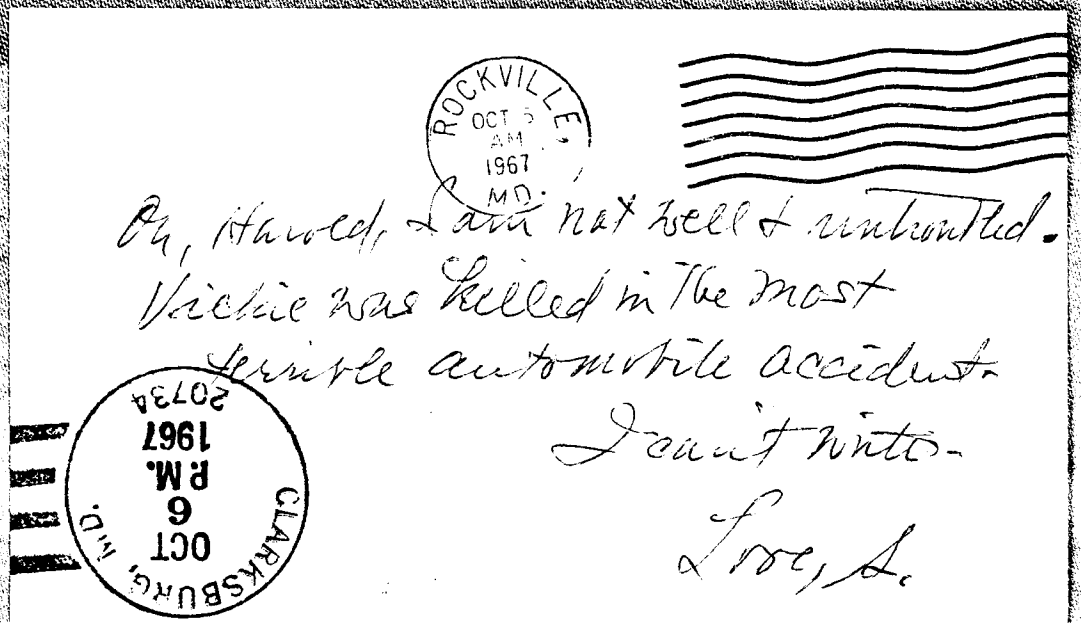 ROCKVILLE,
OCT 5
AM
1967
MD.
Oh, Harold, I am not well &
Vickie was killed in the most
terrible automobile accident-
I can't write-
Love, S.
CLARKSBURG, MD.
OCT
6
P.M.
1967
20734